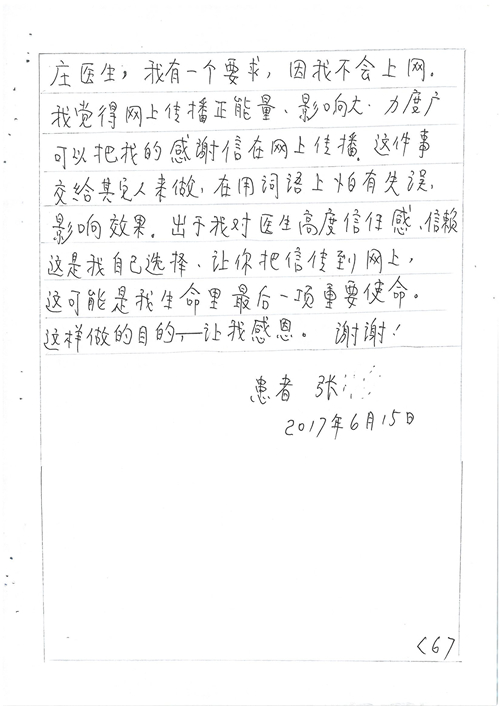 庄医生，我有一个要求，因我不会上网。
我觉得网上传播正能量、影响大、力度广
可以把我的感谢信在网上传播。这件事
交给其它人来做，在用词语上怕有失误，
影响效果。出于我对医生高度信任感、信赖
这是我自己选择、让你把信传到网上，
这可能是我生命里最后一项重要使命。
这样做的目的，——让我感恩。 谢谢！
患者 张
2017年6月15日
<6>